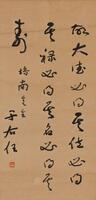 故大德必得其位必得
其祿必得其名必得其
壽
培南先生
于右任